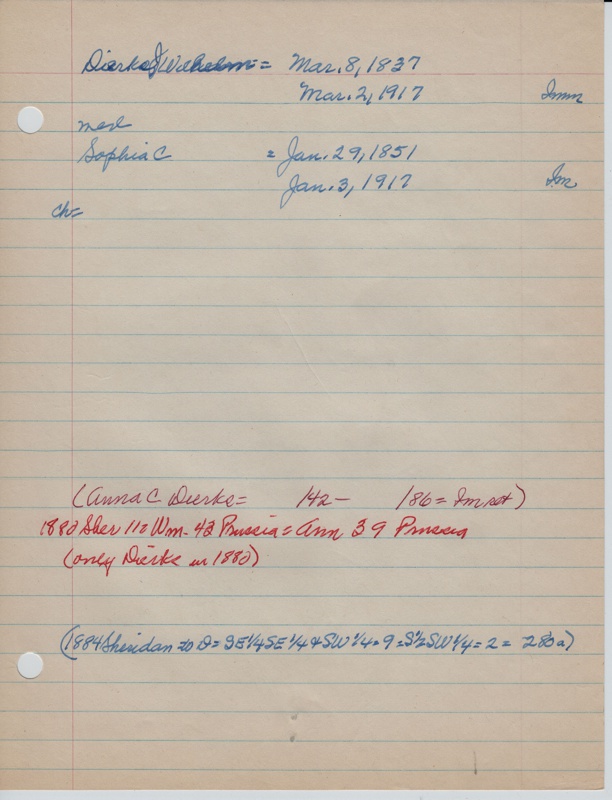 Dierks J Wilhelm = Mar. 8, 1837
Mar. 2, 1917 Imm
med
Sophia C = Jan. 29, 1851
Jan. 3, 1917 Im
ch=
(Anna C Dierks= 142- 186= Im set)
1880 Sher 112 Wm- 42 Prussia= Ann 39 Prussia
(only Dierks in 1880)
(1884 Sheridan to D= SE 1/4 SE 1/4 & SW 1/4= 9= S 1/2 SW 1/4= 2= 280 a)